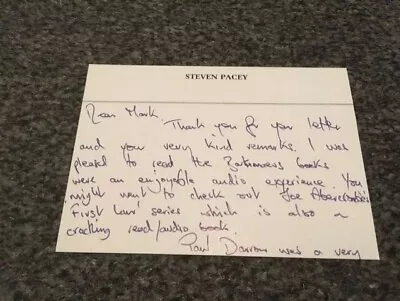 STEVEN PACEY
Dear Mark,
Thank you for your letter
and your very kind remarks. I was
pleased to read the books
were an enjoyable audio experience. You
might want to check out Joe Abercrombie's
'First Law' series which is also a
cracking read/audio book.
Paul Darrow was a very